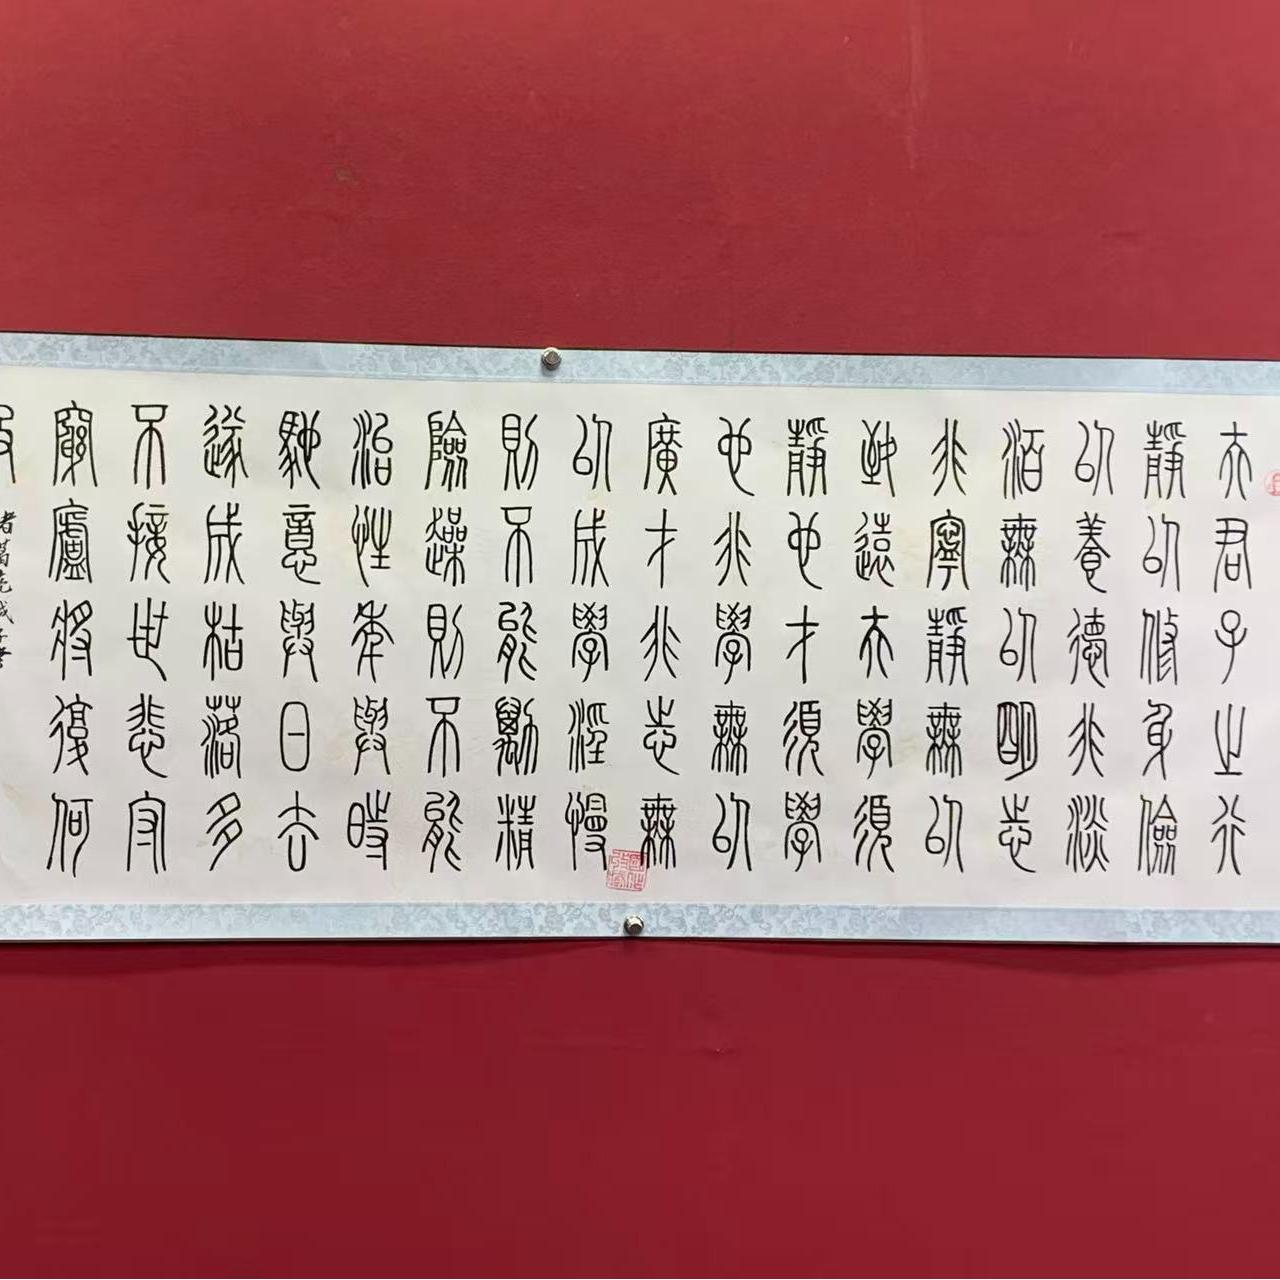 夫君子之行
靜以修身儉
以養德非淡
泊無以明志
非寧靜無以
致遠夫學須
靜也才須學
也非學無以
廣才非志無
以成學淫慢
則不能勵精
險躁則不能
治性年與時
馳意與日去
遂成枯落多
不接世悲守
窮廬將復何
及
諸葛亮誡子書